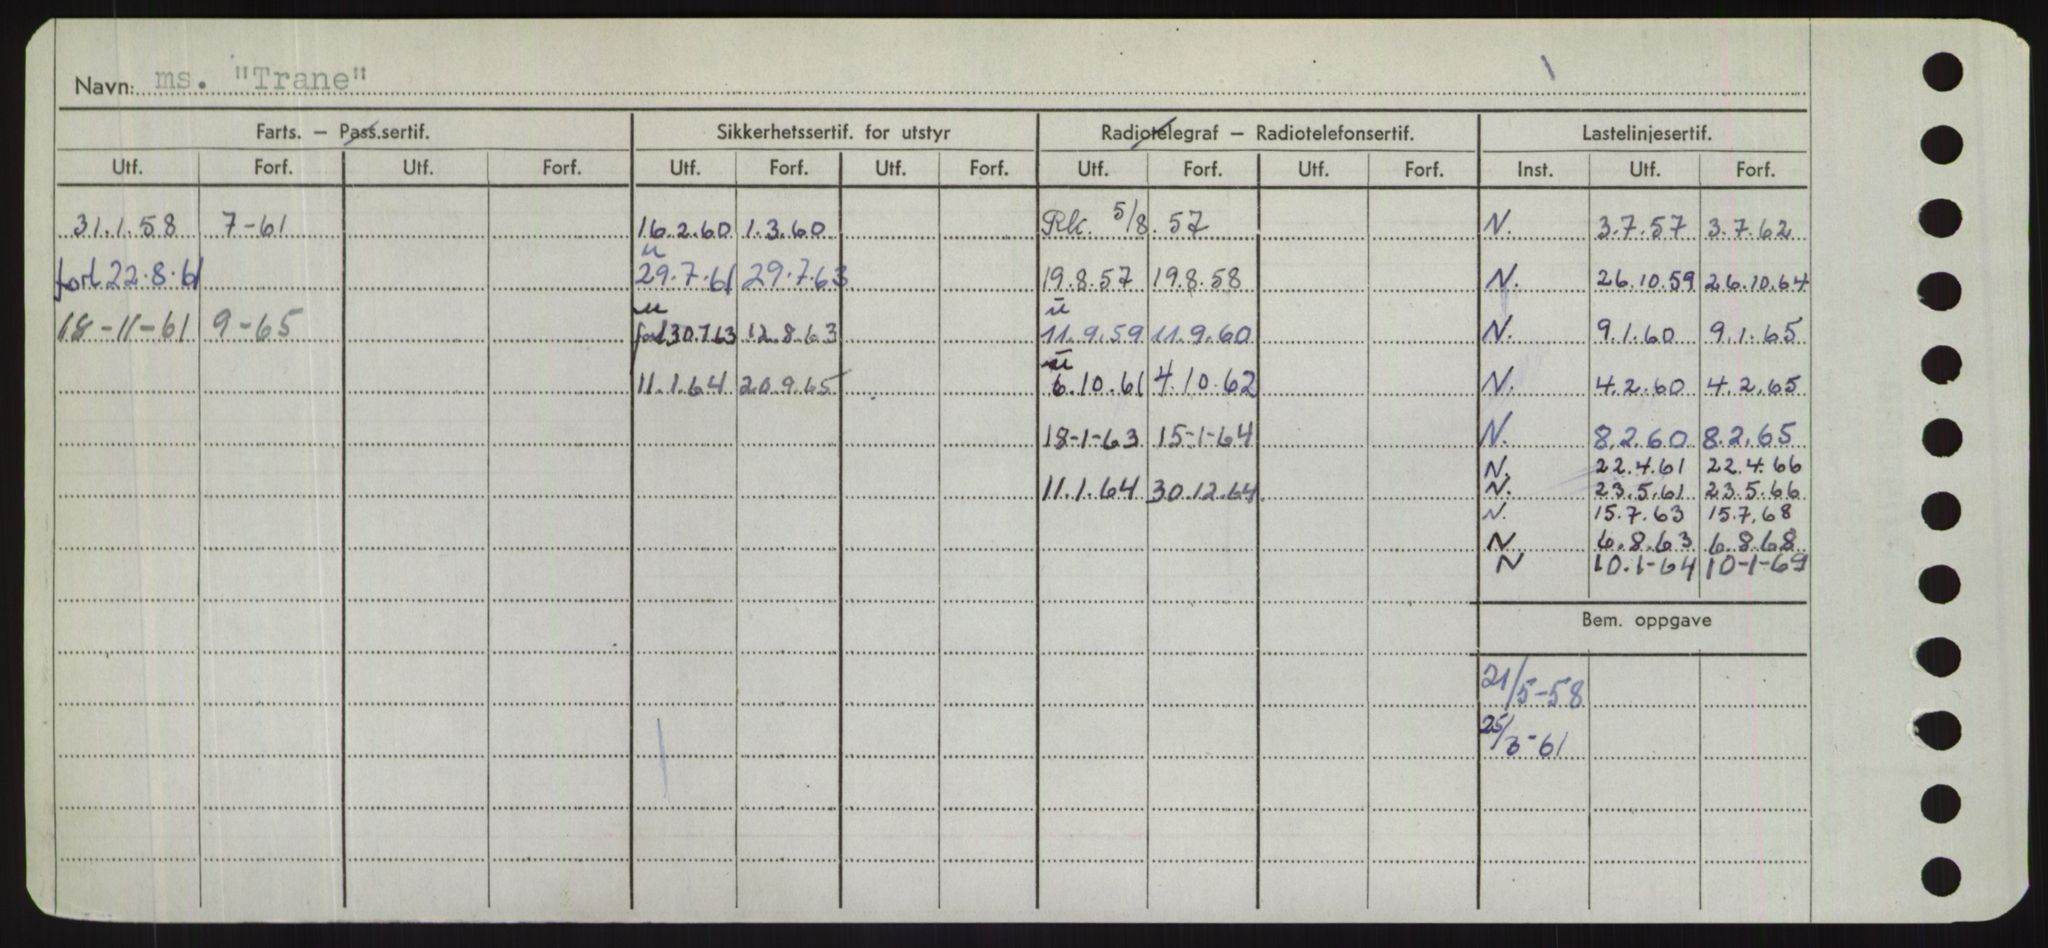 Navn: ms. "Trane"
Farts. – Pass.sertif. Sikkerhetssertif. for utstyr Radiotelegraf – Radiotelefonsertif. Lastelinjesertif.
Utf. Forf. Utf. Forf. Utf. Forf. Utf. Forf. Utf. Forf. Utf. Forf. Inst. Utf. Forf.
31.1.58 7-61 16.2.60 1.3.60 Rk 5/8.57 N. 3.7.57 3.7.62
u
forl 22.8.61 29.7.61 29.7.63 19.8.57 19.8.58 N. 26.10.59 26.10.64
u u
18-11-61 9-65 forl 30.7.63 12.8.63 11.9.59 11.9.60 N. 9.1.60 9.1.65
u
11.1.64 20.9.65 6.10.61 4.10.62 N. 4.2.60 4.2.65
18-1-63 15-1-64 N. 8.2.60 8.2.65
N. 22.4.61 22.4.66
11.1.64 30.12.64 N. 23.5.61 23.5.66
N. 15.7.63 15.7.68
N 6.8.63 6.8.68
N 10.1-64 10-1-69
Bem. oppgave
21/5-58
25/3-61